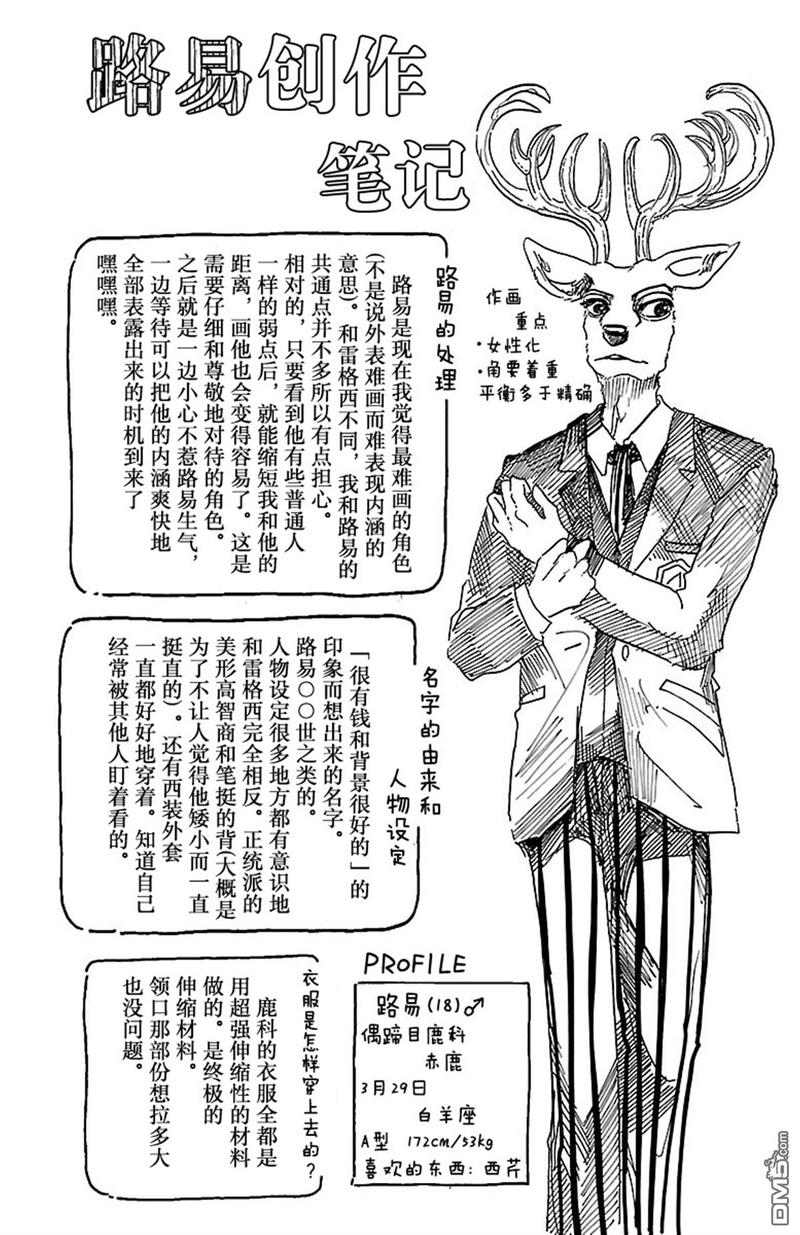 路易创作
笔记
作画
重点
·女性化
·角要着重
平衡多于精确
路易的处理
路易是现在我觉得最难画的角色
(不是说外表难画而难表现内涵的
意思)。和雷格西不同，我和路易的
共通点并不多所以有点担心。
相对的，只要看到他有些普通人
一样的弱点后，就能缩短我和他的
距离，画他也会变得容易了。这是
需要仔细和尊敬地对待的角色。
之后就是一边小心不惹路易生气，
一边等待可以把他的内涵爽快地
全部表露出来的时机到来了
嘿嘿嘿。
名字的由来和
人物设定
「很有钱和背景很好的」的
印象而想出来的名字。
路易○○世之类的。
人物设定很多地方都有意识地
和雷格西完全相反。正统派的
美形高智商和笔挺的背(大概是
为了不让人觉得他矮小而一直
挺直的)。还有西装外套
一直都好好地穿着。知道自己
经常被其他人盯着看的。
衣服是怎样穿上去的？
鹿科的衣服全都是
用超强伸缩性的材料
做的。是终极的
伸缩材料。
领口那部份想拉多大
也没问题。
PROFILE
路易(18)♂
偶蹄目鹿科
赤鹿
3月29日
白羊座
A型 172cm/53kg
喜欢的东西：西芹
DM5.com